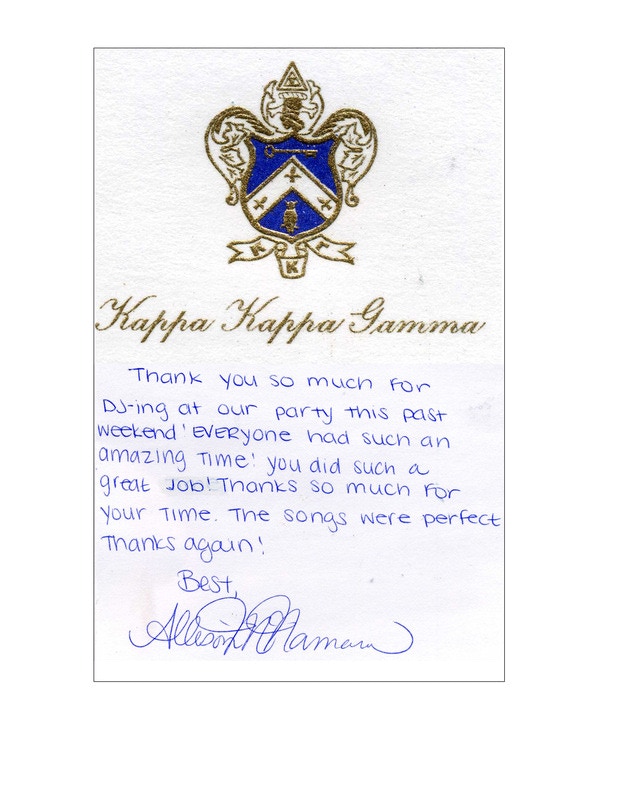 K
Kappa Kappa Gamma
Thank you so much for
DJ-ing at our party this past
weekend! EVERyone had such an
amazing Time! you did such a
great Job! Thanks so much for
your Time. The songs were perfect
Thanks again!
Best,
Allison McNamara